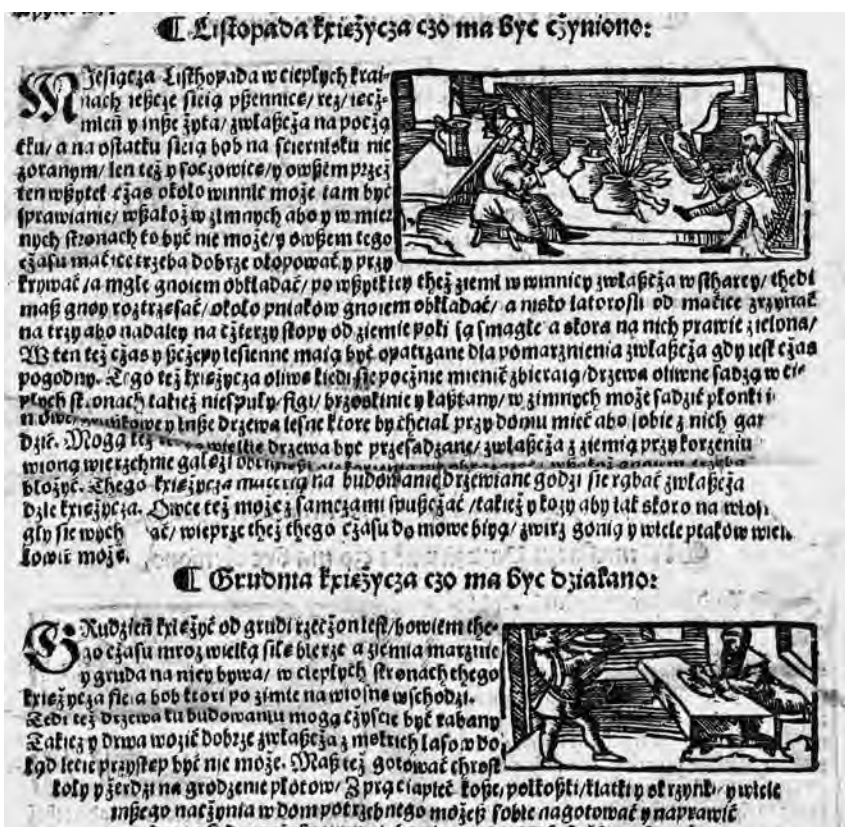 ¶ Listopada kxiężycza czo ma być cżyniono:
MJesiącza Listhopada w ciepłych krai-
nach ießcże sieią pßennice/ reż/ iecż-
mień y inße żyta/ zwłaßcża na począ
tku/ a na ostatku sieią bob na sciernisku nie
zoranym/ len też y soczowice/ y owßem przez
ten wßytek cżas około winnic może tam być
sprawianie/ wßakoż w zimnych abo y w mier
nych stronach to być nie może/ y owßem tego
cżasu macice trzeba dobrze okopować y przy
krywać/ a mgłe gnoiem obkładać/ po wßytkiey theż ziemi w winnicy zwłaßcża w stharey/ thedi
maß gnoy roztrzesać/ około pniakow gnoiem obkładać/ a nisko latorosli od macice zrzynać
na trzy abo nadaley na cżterzy stopy od ziemie poki są smagłe a skora na nich prawie zielona/
W ten też cżas y ßcżepy iesienne maią być opatrzane dla pomarznienia zwłaßcża gdy iest cżas
pogodny. Tego też kxiężycza oliwe kiedi sie pocżnie mienić zbieraią/ drzewa oliwne sadzą w cie-
płych stronach takież niespuły/ figi/ brzoskinie y kaßtany/ w zimnych może sadzić płonki i
y inße drzewa leśne ktore by chciał przy domu mieć abo sobie z nich gar
dzić. Mogą też wielkie drzewa być przesadzane/ zwłaßcża z ziemią przy korzeniu
wioną wierzchnie gałęzi
błożyć. Thego kxiężycza na budowanie drzewiane godzi sie rąbać zwłaßcża
dzie kxiężycza. Owce też możeß samczami spußcżać/ takież y kozy aby iak skoro na wiosn
gły sie wych ać/ wieprze theż thego cżasu domowe biyą/ zwirz gonią y wiele ptakow wiel
łowić może.
¶ Grudnia kxiężycza czo ma być działano:
GRudzień kxiężyc od grudi rzeczon iest/ bowiem the-
go cżasu mroz wielką siłe bierze a ziemia marznie
y gruda na niey bywa/ w ciepłych stronach thego
kxiężycza sieią bob ktori po zimie na wiosne wschodzi.
Tedi też drzewa ku budowaniu mogą cżyscie być rąbany
Takież y drwa wozić dobrze zwłaßcża z mokrich lasow do
kąd lecie przystęp być nie może. Maß też gotować chrost
koły y żerdzi na grodzenie płotow/ Z prącia pleć koße/ połkoßki/ klatki y skrzynki y wiele
inßego naczynia w dom potrzebnego możeß sobie nagotować y naprawić